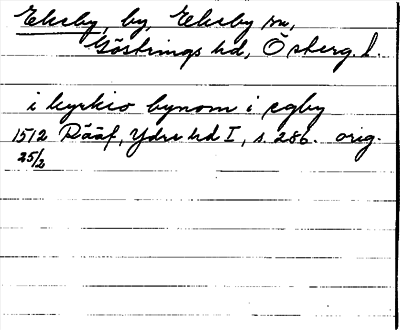 Eleksby, by, Ekeby sn,
Göstrings hd, Östergl.
i kyrkio bynom i egby
1512 Rääf, Ydre hd I, s. 286. orig.
25/2